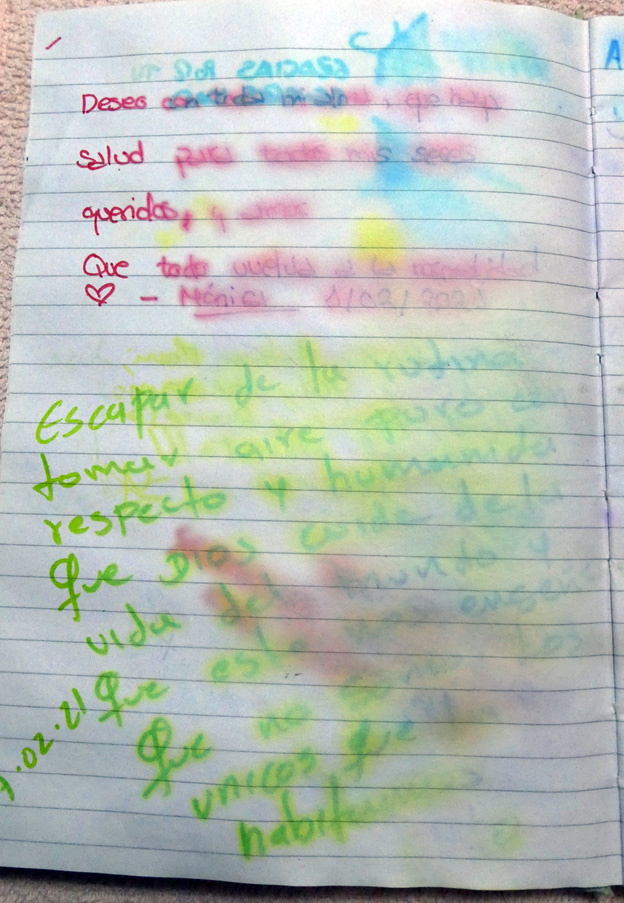 Deseo con toda mi alma, que haya
salud para todos mis seres
queridos, y amor
Que todo vuelva a la normalidad
♡ - Mónica 1/02/2021
Escapar de la rutina
tomar aire puro con
respecto y humanida
Que Dios cuida de la
vida del mundo y
Que esto nos enseñe
Que no somos los
unicos que
habitamos
.02.21